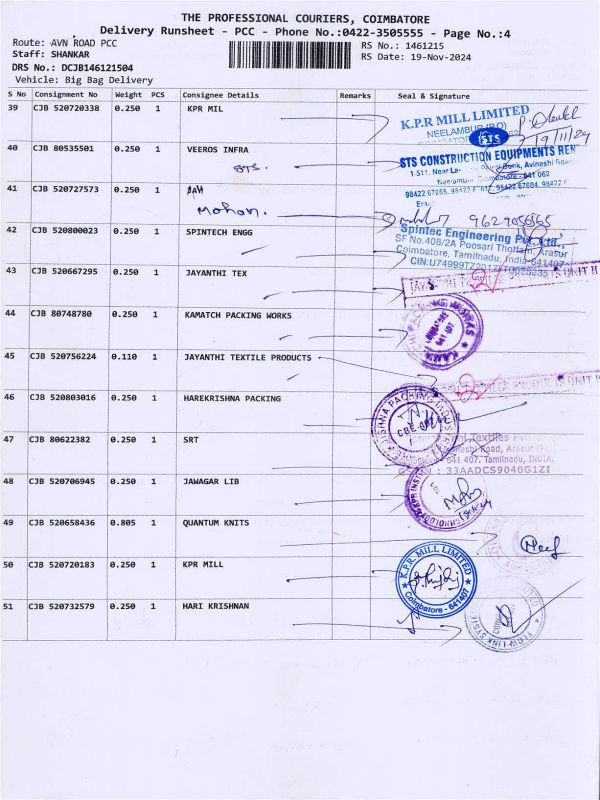 THE PROFESSIONAL COURIERS, COIMBATORE
Delivery Runsheet - PCC - Phone No.:0422-3505555 - Page No.:4
Route: AVN ROAD PCC
RS No.: 1461215
Staff: SHANKAR
RS Date: 19-Nov-2024
DRS No.: DCJB146121504
Vehicle: Big Bag Delivery
S No Consignment No Weight PCS Consignee Details Remarks Seal & Signature
39 CJB 520720338 0.250 1 KPR MIL
K.P.R MILL LIMITED
NEELAMBUR (PO)
19/11/24
40 CJB 80535501 0.250 1 VEEROS INFRA
STS.
STS
STS CONSTRUCTION EQUIPMENTS REN
Bank, Avinashi Road
Neelambur, Coimbatore - 641 062
41 CJB 520727573 0.250 1
Mohan.
42 CJB 520800023 0.250 1 SPINTECH ENGG
Spintec Engineering Pvt. Ltd.,
SF No.408/2A Poosari Thottam, Arasur
Coimbatore, Tamilnadu, India-641407
43 CJB 520667295 0.250 1 JAYANTHI TEX
UNIT II
44 CJB 80748780 0.250 1 KAMATCH PACKING WORKS
PACKING WORKS
45 CJB 520756224 0.110 1 JAYANTHI TEXTILE PRODUCTS
46 CJB 520803016 0.250 1 HAREKRISHNA PACKING
47 CJB 80622382 0.250 1 SRT
Textiles
Road, Arasur
641 407. Tamilnadu, INDIA.
33AADCS9040G1ZI
48 CJB 520706945 0.250 1 JAWAGAR LIB
49 CJB 520658436 0.805 1 QUANTUM KNITS
50 CJB 520720183 0.250 1 KPR MILL
K.P.R. MILL LIMITED
Coimbatore - 641407
51 CJB 520732579 0.250 1 HARI KRISHNAN
FLOW-LINK